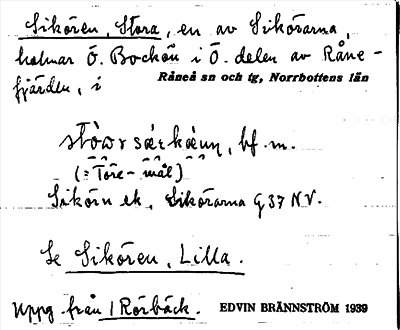 Sikören, Stora, en av Sikörarna,
holmar Ö. Bockön i Ö. delen av Råne-
fjärden, i Råneå sn och tg, Norrbottens län
stòwr sæ̀rkæ̀unn, bf. m.
(= Töre-mål)
Sikörn ek, Sikörarna G 37 NV.
Se Sikören, Lilla.
Uppg. från Rörbäck. EDVIN BRÄNNSTRÖM 1939